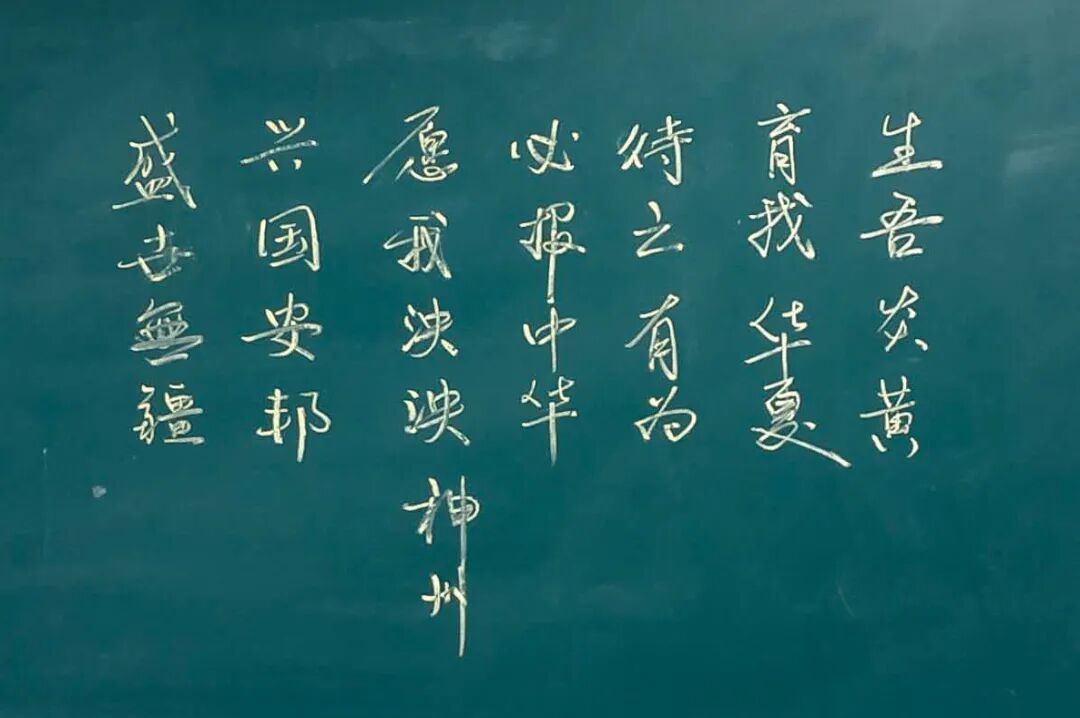 生吾炎黄
育我华夏
待之有为
必报中华
愿我泱泱神州
兴国安邦
盛世無疆